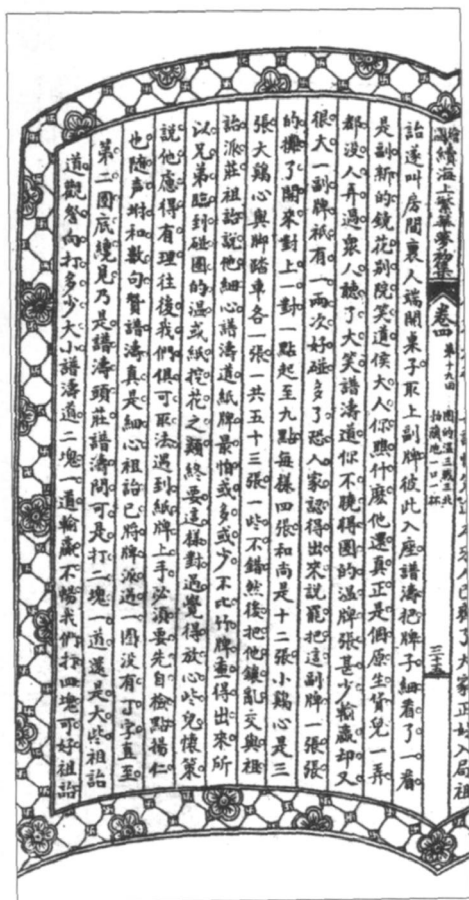 繪圖續海上繁華夢初集 卷四 第十九回 三十五
詒遂叫房間裏人端開菓子取上副牌彼此入座譜濤把牌子細看了一看
是副新的鏡花別院笑道侯大人你瞧什麼他還真正是個原生貨兒一弄
都沒人弄過衆人聽了大笑譜濤道你不曉得圈的溫牌張甚少輸贏却又
很大一副牌祇有一兩次好碰多了恐人家認得出來說罷把這副牌一張張
的攤了開來對上一對一點起至九點每樣四張和尚是十二張小鷄心是三
張大鷄心與脚踏車各一張一共五十三張一些不錯然後把他鎮亂交與祖
詒派莊祖詒說他細心譜濤道紙牌最怕或多或少不比竹牌查得出來所
以兄弟臨到碰圈的溫或紙挖花之類終要這樣對過覺得放心些兒懷策
說他慮得有理往後我們俱可取法遇到紙牌上手必須要先自檢點揚仁
也隨声附和數句贊譜濤真是細心祖詒已將牌派過一圈沒有丁字直至
第二圈底纔見乃是譜濤頭莊譜濤問可是打二塊一道還是大些祖詒
道觀詧向打多少大小譜濤道二塊一道輸贏不大我們打四塊可好祖詒